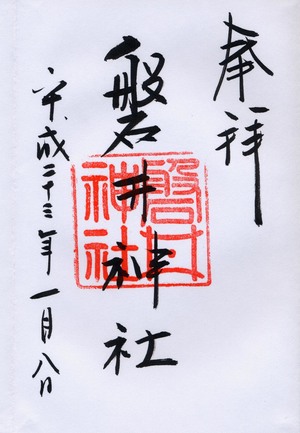 奉拝
磐井神社
平成二十三年一月八日
磐井神社